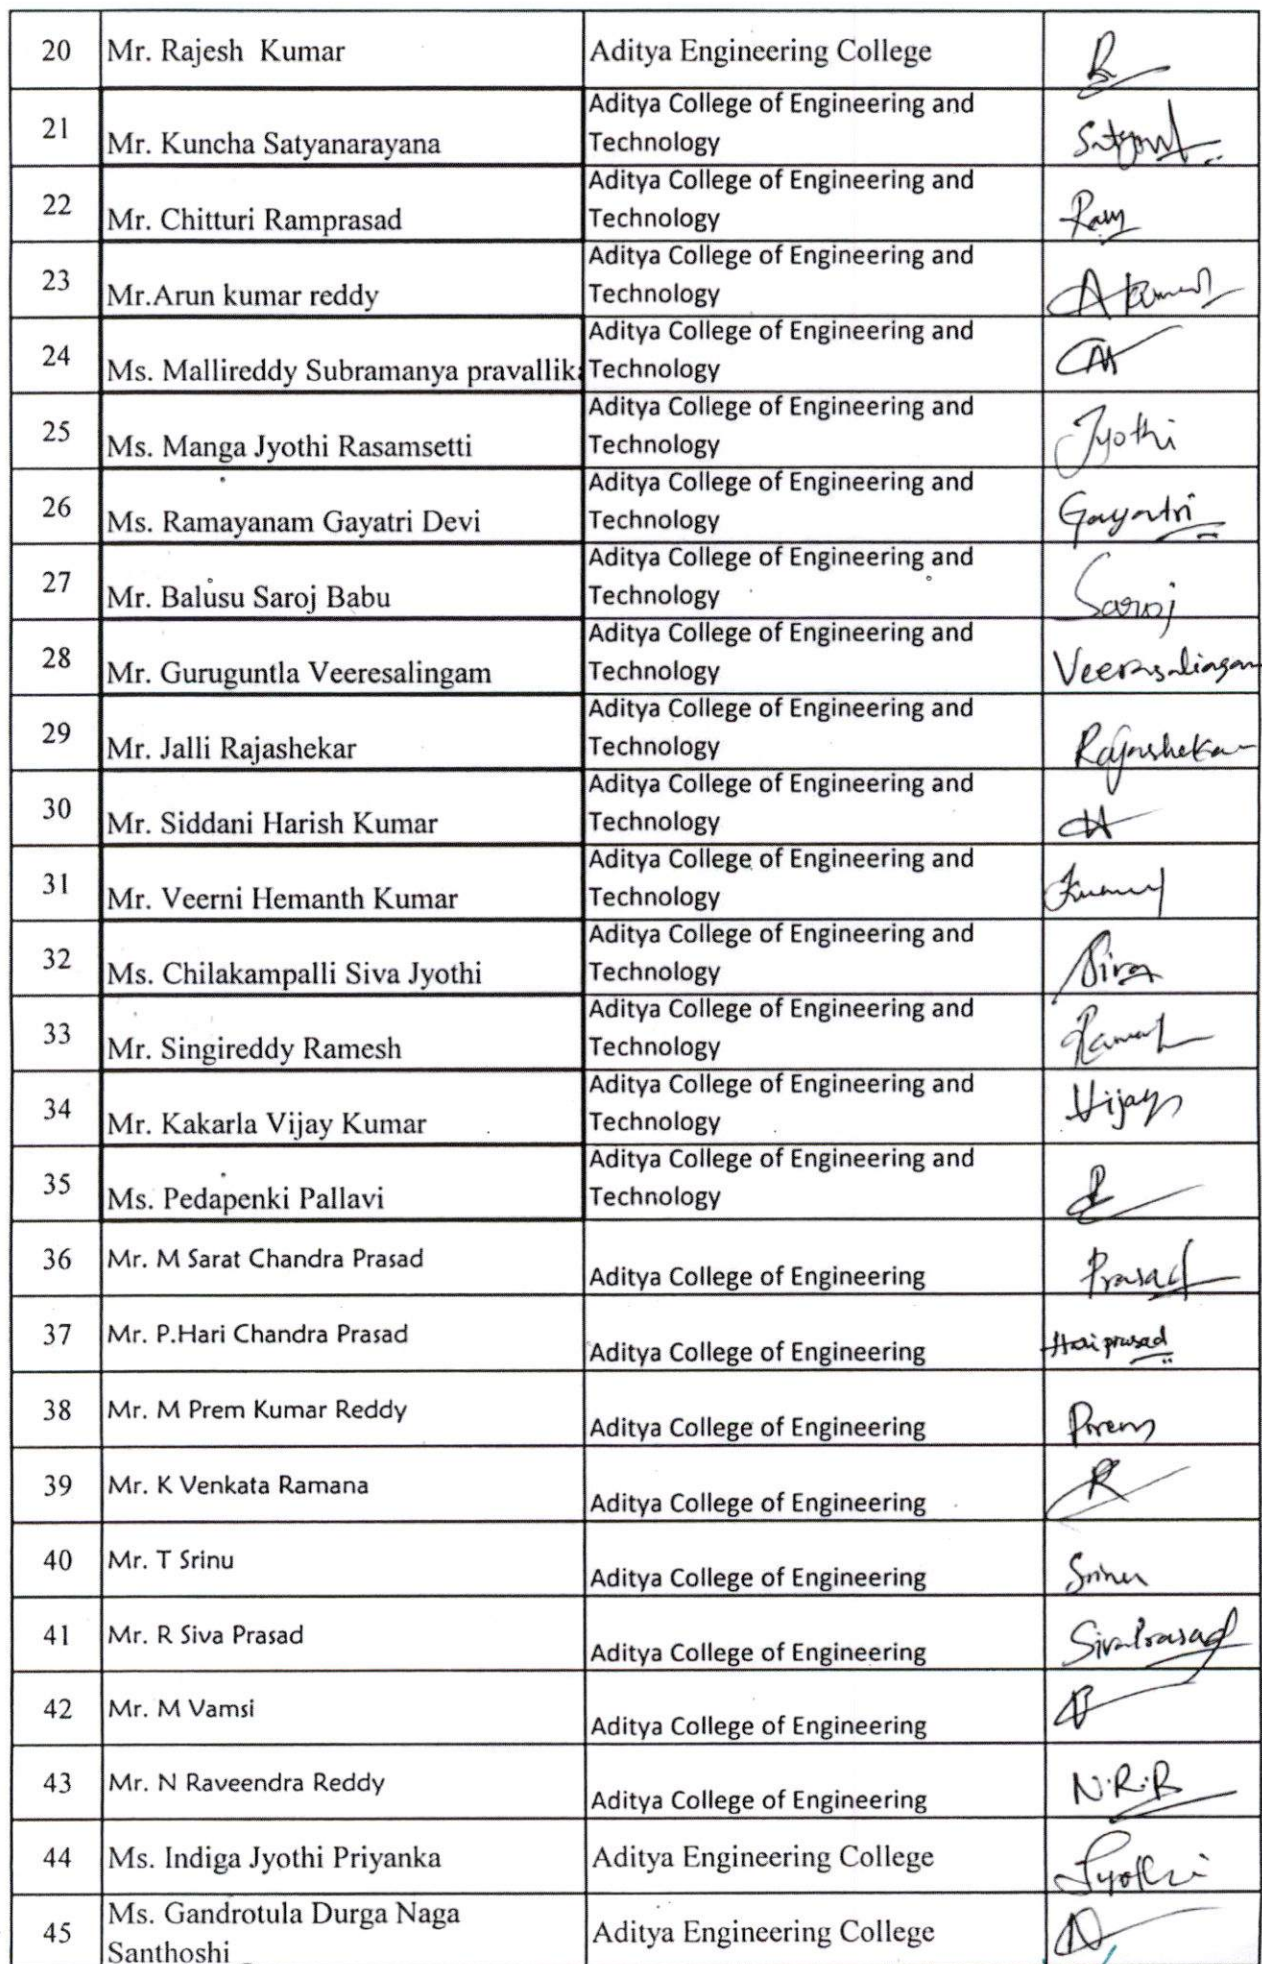 20 Mr. Rajesh Kumar Aditya Engineering College
21 Mr. Kuncha Satyanarayana Aditya College of Engineering and
Technology
22 Mr. Chitturi Ramprasad Aditya College of Engineering and
Technology Ram
23 Mr.Arun kumar reddy Aditya College of Engineering and
Technology
24 Ms. Mallireddy Subramanya pravallika Aditya College of Engineering and
Technology
25 Ms. Manga Jyothi Rasamsetti Aditya College of Engineering and
Technology Jyothi
26 Ms. Ramayanam Gayatri Devi Aditya College of Engineering and
Technology Gayatri
27 Mr. Balusu Saroj Babu Aditya College of Engineering and
Technology Saroj
28 Mr. Guruguntla Veeresalingam Aditya College of Engineering and
Technology Veeresalingam
29 Mr. Jalli Rajashekar Aditya College of Engineering and
Technology Rajashekar
30 Mr. Siddani Harish Kumar Aditya College of Engineering and
Technology
31 Mr. Veerni Hemanth Kumar Aditya College of Engineering and
Technology
32 Ms. Chilakampalli Siva Jyothi Aditya College of Engineering and
Technology Siva
33 Mr. Singireddy Ramesh Aditya College of Engineering and
Technology
34 Mr. Kakarla Vijay Kumar Aditya College of Engineering and
Technology Vijay
35 Ms. Pedapenki Pallavi Aditya College of Engineering and
Technology
36 Mr. M Sarat Chandra Prasad Aditya College of Engineering Prasad
37 Mr. P.Hari Chandra Prasad Aditya College of Engineering Hari prasad
38 Mr. M Prem Kumar Reddy Aditya College of Engineering Prem
39 Mr. K Venkata Ramana Aditya College of Engineering R
40 Mr. T Srinu Aditya College of Engineering Srinu
41 Mr. R Siva Prasad Aditya College of Engineering SivaPrasad
42 Mr. M Vamsi Aditya College of Engineering
43 Mr. N Raveendra Reddy Aditya College of Engineering N.R.R
44 Ms. Indiga Jyothi Priyanka Aditya Engineering College Jyothi
45 Ms. Gandrotula Durga Naga
Santhoshi Aditya Engineering College